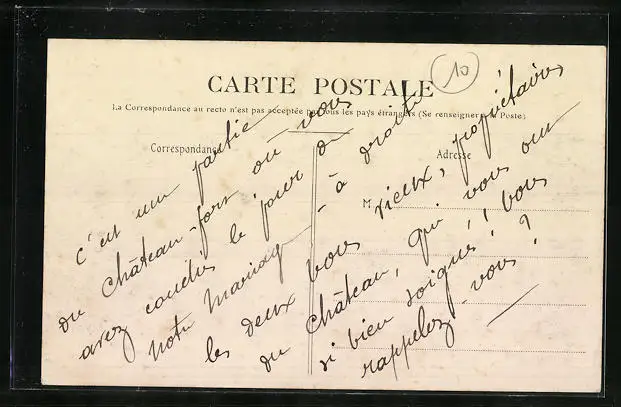 10
CARTE POSTALE
La Correspondance au recto n'est pas acceptée par tous les pays étrangers (Se renseigner à la Poste)
Correspondance
Adresse
M
c'est une partie
du château-fort où vous
avez couchés le jour de
notre mariage - à droite
les deux bons vieux, propriétaires
du château, qui vous ont
si bien soignés! vous
rappelez-vous?